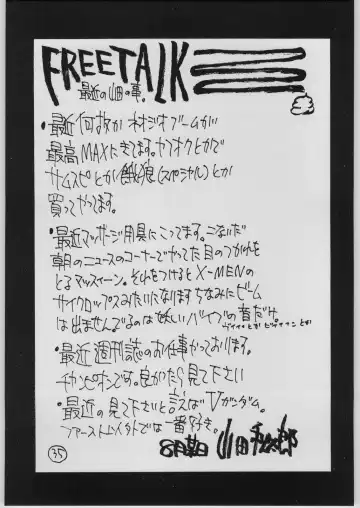 FREETALK
最近の山田の事。
・最近何故かネオジオブームが
最高MAXにきてます。ヤフオクとかで
サムスピとか餓狼(スペシャル)とか
買ってやってます。
・最近マッサージ用具にこってます。こないだ
朝のニュースのコーナーでやってた目のつかれを
とるマッスィーン。それをつけるとX-MENの
サイクロップスみたいになります ちなみにビーム
は出ませんでるのは妖しいバイブの音だけ。
・最近週刊誌のお仕事やっております。
チャンピオンです。良かったら見て下さい
・最近の見て下さいと言えばVガンダム。
ファーストムイタトでは一番好き。
8月期日 山田
35